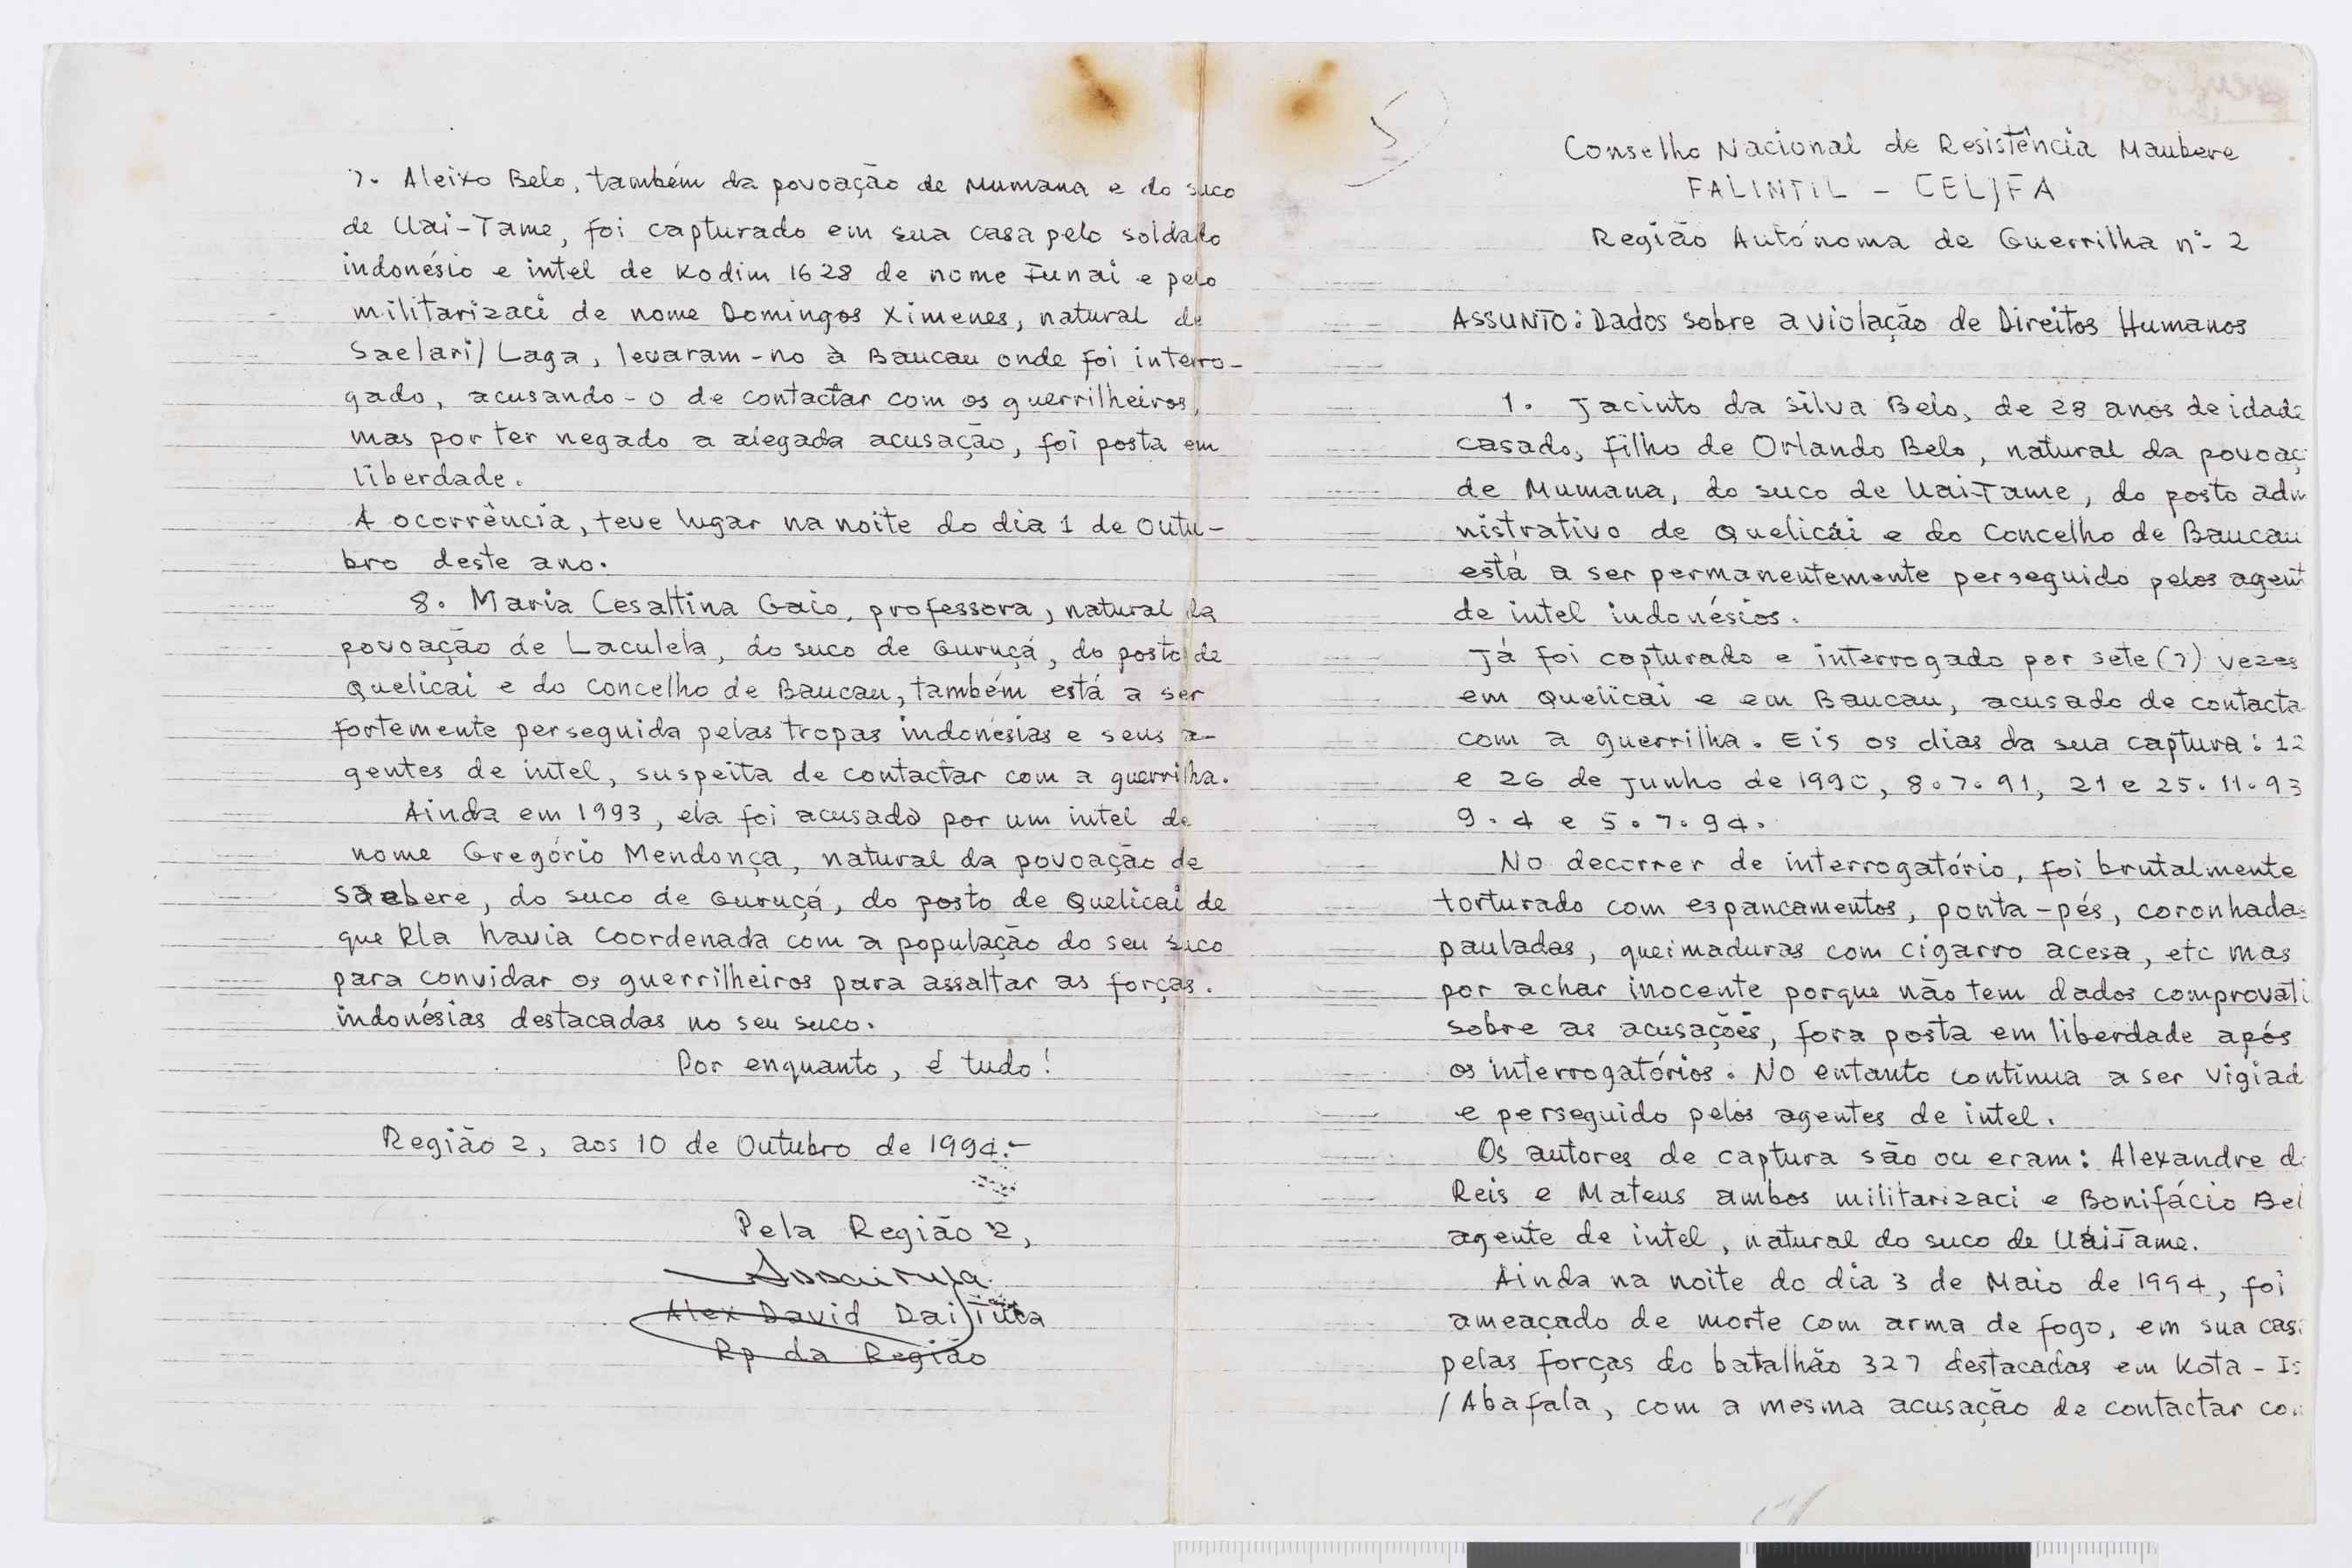 7. Aleixo Belo, também da povoação de Mumana e do suco
de Uai-Tame, foi capturado em sua casa pelo soldado
indonésio e intel de Kodim 1628 de nome Funai e pelo
militarizaci de nome Domingos Ximenes, natural de
Saelari/Laga, levaram-no à Baucau onde foi interro-
gado, acusando-o de contactar com os guerrilheiros,
mas por ter negado a alegada acusação, foi posta em
liberdade.
A ocorrência, teve lugar na noite do dia 1 de Outu-
bro deste ano.
8. Maria Cesaltina Gaio, professora, natural da
povoação de Laculela, do suco de Guruçá, do posto de
Quelicai e do Concelho de Baucau, também está a ser
fortemente perseguida pelas tropas indonésias e seus a-
gentes de intel, suspeita de contactar com a guerrilha.
Ainda em 1993, ela foi acusado por um intel de
nome Gregório Mendonça, natural da povoação de
Saebere, do suco de Guruçá, do posto de Quelicai de
que Ela havia coordenada com a população do seu suco
para convidar os guerrilheiros para assaltar as forças.
indonésias destacadas no seu suco.
Por enquanto, é tudo!
Região 2, aos 10 de Outubro de 1994.-
Pela Região 2,
Alex David Daitula
Rp da Região
5
Conselho Nacional de Resistência Maubere
FALINTIL - CEL/FA
Região Autónoma de Guerrilha nº 2
ASSUNTO: Dados sobre a violação de Direitos Humanos
1. Jacinto da Silva Belo, de 28 anos de idade
casado, filho de Orlando Belo, natural da povoaç
de Mumana, do suco de Uai-Tame, do posto adm
nistrativo de Quelicai e do Concelho de Baucau
está a ser permanentemente perseguido pelos agent
de intel indonésios.
Já foi capturado e interrogado por sete (7) vezes
em Quelicai e em Baucau, acusado de contacta
com a guerrilha. Eis os dias da sua captura: 12
e 26 de Junho de 1990, 8.7.91, 21 e 25.11.93
9.4 e 5.7.94.
No decorrer de interrogatório, foi brutalmente
torturado com espancamentos, ponta-pés, coronhadas
pauladas, queimaduras com cigarro acesa, etc mas
por achar inocente porque não tem dados comprovati
sobre as acusações, fora posta em liberdade após
os interrogatórios. No entanto continua a ser vigiad
e perseguido pelos agentes de intel.
Os autores de captura são ou eram: Alexandre d
Reis e Mateus ambos militarizaci e Bonifácio Bel
agente de intel, natural do suco de UaiTame.
Ainda na noite do dia 3 de Maio de 1994, foi
ameaçado de morte com arma de fogo, em sua cas
pelas forças do batalhão 327 destacadas em Kota - Is
/Abafala, com a mesma acusação de contactar co